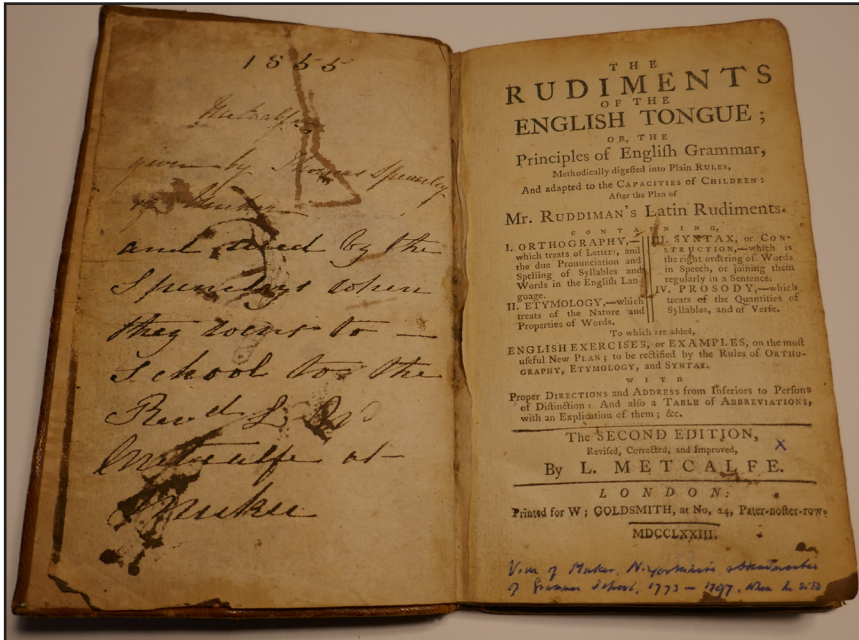 1855
Metcalfe
given by Thomas Spensley
of Muker
and used by the
Spensleys when
they went to —
School to the
Revd L.
Metcalfe at —
Muker
THE
RUDIMENTS
OF THE
ENGLISH TONGUE;
OR, THE
Principles of Engliſh Grammar,
Methodically digeſted into Plain RULES,
And adapted to the CAPACITIES of CHILDREN:
After the Plan of
Mr. RUDDIMAN's Latin Rudiments.
CONTAINING,
I. ORTHOGRAPHY,—
which treats of Letters, and
the due Pronunciation and
Spelling of Syllables and
Words in the Engliſh Lan
guage.
II. ETYMOLOGY,—which
treats of the Nature and
Properties of Words.
III. SYNTAX, or CON-
STRUCTION,—which is
the right ordering of Words
in Speech, or joining them
regularly in a Sentence.
IV. PROSODY,—which
treats of the Quantities of
Syllables, and of Verſe.
To which are added,
ENGLISH EXERCISES, or EXAMPLES, on the moſt
uſeful New PLAN; to be rectified by the Rules of ORTHO-
GRAPHY, ETYMOLOGY, and SYNTAX.
WITH
Proper DIRECTIONS and ADDRESS from Inferiors to Perſons
of Diſtinction: And alſo a TABLE of ABBREVIATIONS,
with an Explication of them; &c.
The SECOND EDITION,
Reviſed, Corrected, and Improved,
x
By L. METCALFE.
LONDON:
Printed for W; GOLDSMITH, at No, 24, Pater-noſter-row.
MDCCLXXIII.
Vicar of Muker, N. Yorkshire & Headmaster
of Grammar School, 1773 – 1797, when he died